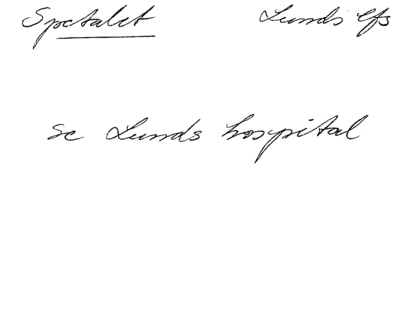 Spetalet Lunds lfs
se Lunds hospital